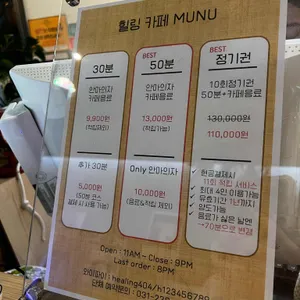 힐링 카페 MUNU
30분
안마의자
카페음료
9,900원
(적립제외)
추가 30분
5,000원
(50분 코스
결제 시 사용 가능)
BEST
50분
안마의자
카페음료
13,000원
(적립가능)
Only 안마의자
10,000원
(음료&적립 제외)
BEST
정기권
10회정기권
50분+카페음료
130,000원
110,000원
현금결제시
1회 적립 서비스
최대 4인 이용가능
유효기간 1년까지
양도가능
음료가 싫은 날엔
→70분으로 변경
Open : 11AM ~ Close : 9PM
Last order : 8PM
healing404/h123456789
단체 예약문의 : 031-23